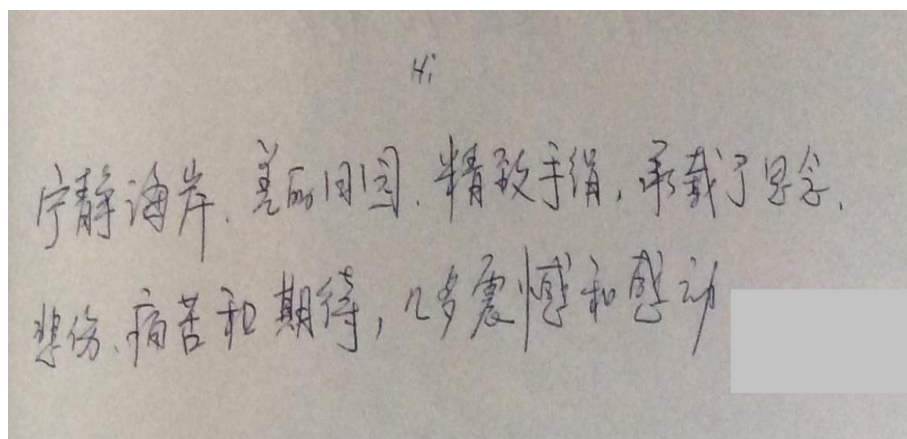 Hi
宁静海岸、美丽田园、精致手绢,承载了思念、
悲伤、痛苦和期待,几多震憾和感动